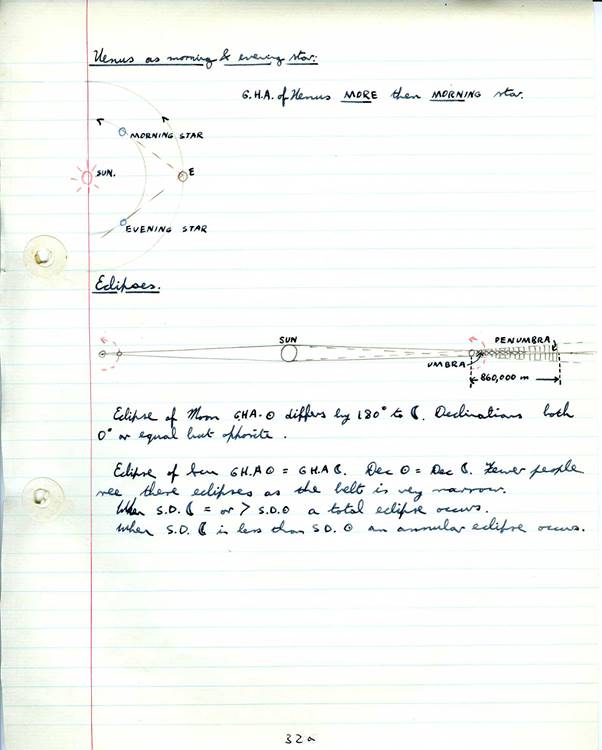 Venus as morning & evening star.
G.H.A. of Venus MORE then MORNING star.
MORNING STAR
SUN.
E
EVENING STAR
Eclipses.
SUN
PENUMBRA
UMBRA
860,000 m
Eclipse of Moon GHA ☉ differs by 180° to ☾. Declinations both
0° or equal but opposite.
Eclipse of Sun GHA ☉ = GHA ☾. Dec ☉ = Dec ☾. Fewer people
see these eclipses as the belt is very narrow.
When S.D. ☾ = or > S.D. ☉ a total eclipse occurs.
When S.D. ☾ is less than S.D. ☉ an annular eclipse occurs.
32a